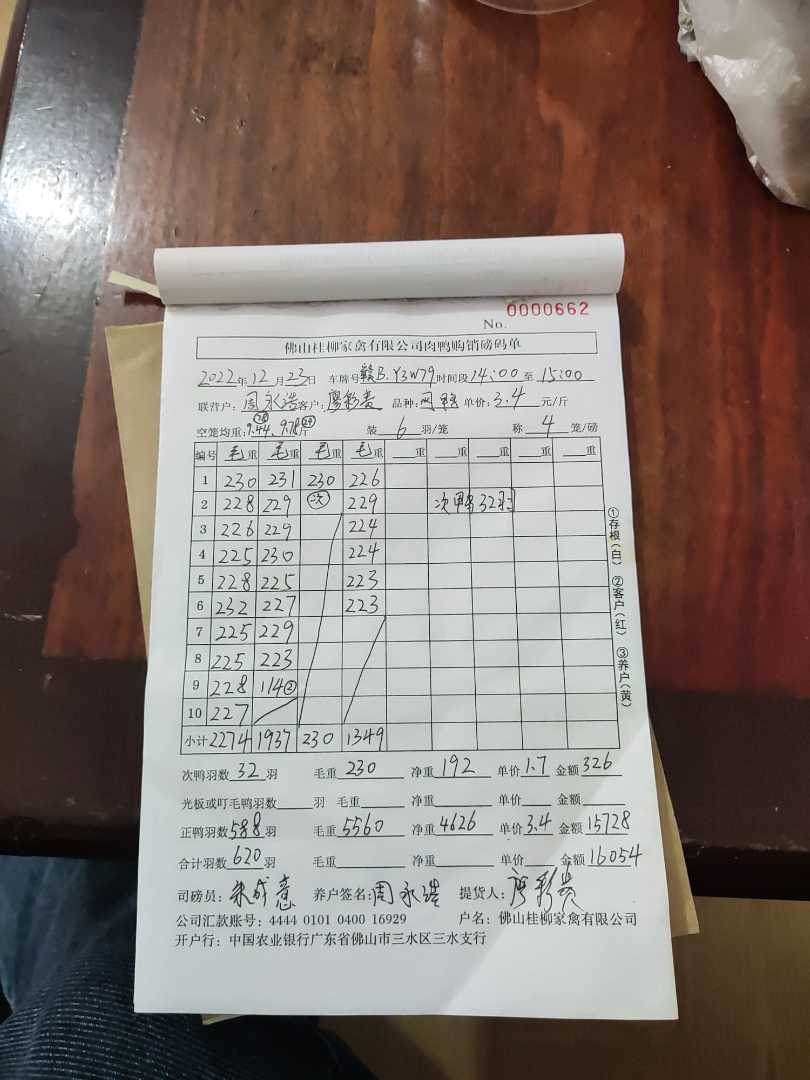 No. 0000662
佛山桂柳家禽有限公司肉鸭购销磅码单
2022年12月23日 车牌号赣B.Y3W79时间段14:00至15:00
联营户:周永浩客户:廖彩贵 品种: 单价:3.4元/斤
空笼均重:9.44、9.78斤 装6羽/笼 称4笼/磅
编号 毛重 毛重 毛重 毛重 重 重 重 重 重
1 230 231 230 226
2 228 229 次 229 次鸭32羽
3 226 229 224
4 225 230 224
5 228 225 223
6 232 227 223
7 225 229
8 225 223
9 228 114②
10 227
小计 2274 1937 230 1349
①存根(白) ②客户(红) ③养户(黄)
次鸭羽数32羽 毛重230 净重192 单价1.7 金额326
光板或叮毛鸭羽数 羽 毛重 净重 单价 金额
正鸭羽数588羽 毛重5560 净重4626 单价3.4 金额15728
合计羽数620羽 毛重 净重 单价 金额16054
司磅员:朱成意 养户签名:周永浩 提货人:廖彩贵
公司汇款账号:4444 0101 0400 16929 户名:佛山桂柳家禽有限公司
开户行:中国农业银行广东省佛山市三水区三水支行